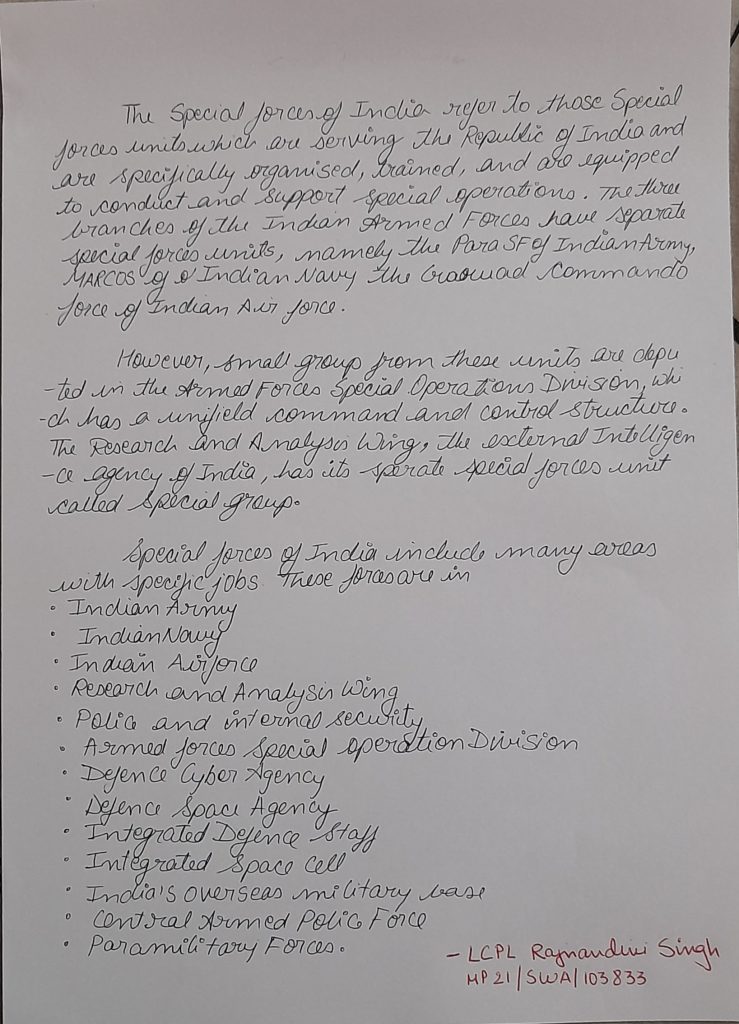 The Special forces of India refer to those Special
forces units which are serving the Republic of India and
are specifically organised, trained, and are equipped
to conduct and support special operations. The three
branches of the Indian Armed Forces have separate
special forces units, namely the Para SF of Indian Army,
MARCOS of Indian Navy the Commando
force of Indian Air force.
However, small group from these units are depu
-ted in the Armed Forces Special Operations Division, whi
-ch has a unifield command and control structure.
The Research and Analysis Wing, the external Intelligen
-ce agency of India, has its sperate special forces unit
called Special group.
Special forces of India include many areas
with specific jobs. These forces are in
• Indian Army
• Indian Navy
• Indian Airforce
• Research and Analysis Wing
• Police and internal security
• Armed forces Special Operation Division
• Defence Cyber Agency
• Defence Space Agency
• Integrated Defence Staff
• Integrated Space Cell
• India's overseas military base
• Central Armed Police Force
• Paramilitary Forces.
- LCPL Rajnandini Singh
MP21/SWA/103833